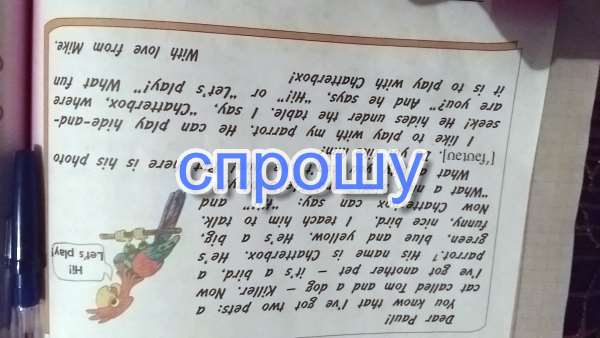 Dear Paul!
You know that I've got two pets: a
cat called Tom and a dog — Killer. Now
I've got another pet — it's a bird, a
parrot*. His name is Chatterbox. He's
green, blue and yellow. He's a big,
funny, nice bird. I teach him to talk.
Now Chatterbox can say: and
"What a
What here is his photo
['fəutəu]. I
I like to play with my parrot. He can play hide-and-
seek! He hides under the table. I say, "Chatterbox, where
are you?" And he says, "Hi!" or "Let's play!" What fun
it is to play with Chatterbox!
With love from Mike.
Hi!
Let's play!
спрошу